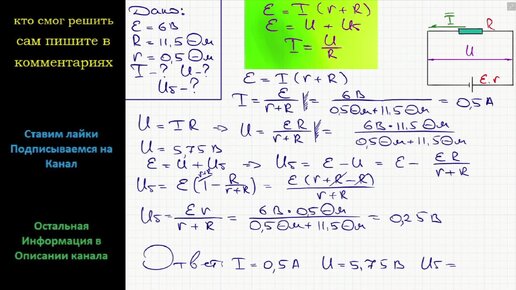 кто смог решить
сам пишите в
комментариях
Ставим лайки
Подписываемся на
Канал
Остальная
Информация в
Описании канала
Дано:
ε = 6В
R = 11,5 Ом
r = 0,5 Ом
I - ? U - ?
Uб - ?
ε = I (r + R)
ε = U + Uб
I = U/R
I
R
U
ε, r
ε = I (r + R)
I = ε/(r + R) = 6В/(0,5 Ом + 11,5 Ом) = 0,5 А
U = IR ⇒ U = εR/(r + R) = 6В · 11,5 Ом/(0,5 Ом + 11,5 Ом)
U = 5,75 В
ε = U + Uб ⇒ Uб = ε - U = ε - εR/(r + R)
Uб = ε(1 - R/(r + R)) = ε(r + R - R)/(r + R)
Uб = εr/(r + R) = 6В · 0,5 Ом/(0,5 Ом + 11,5 Ом) = 0,25 В
Ответ: I = 0,5 А U = 5,75 В Uб =